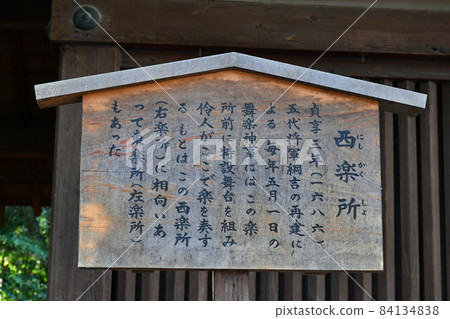 西楽所
にし がく しょ
貞享三年(一六八六)
五代将軍綱吉の再建に
よる 毎年五月一日の
舞楽神事にはこの楽
所前に特設舞台を組み
伶人がここで楽を奏す
る もとはこの西楽所
(右楽所)に相向いあ
って東楽所(左楽所)
もあった
PIXTA
pixta.jp - 84134838